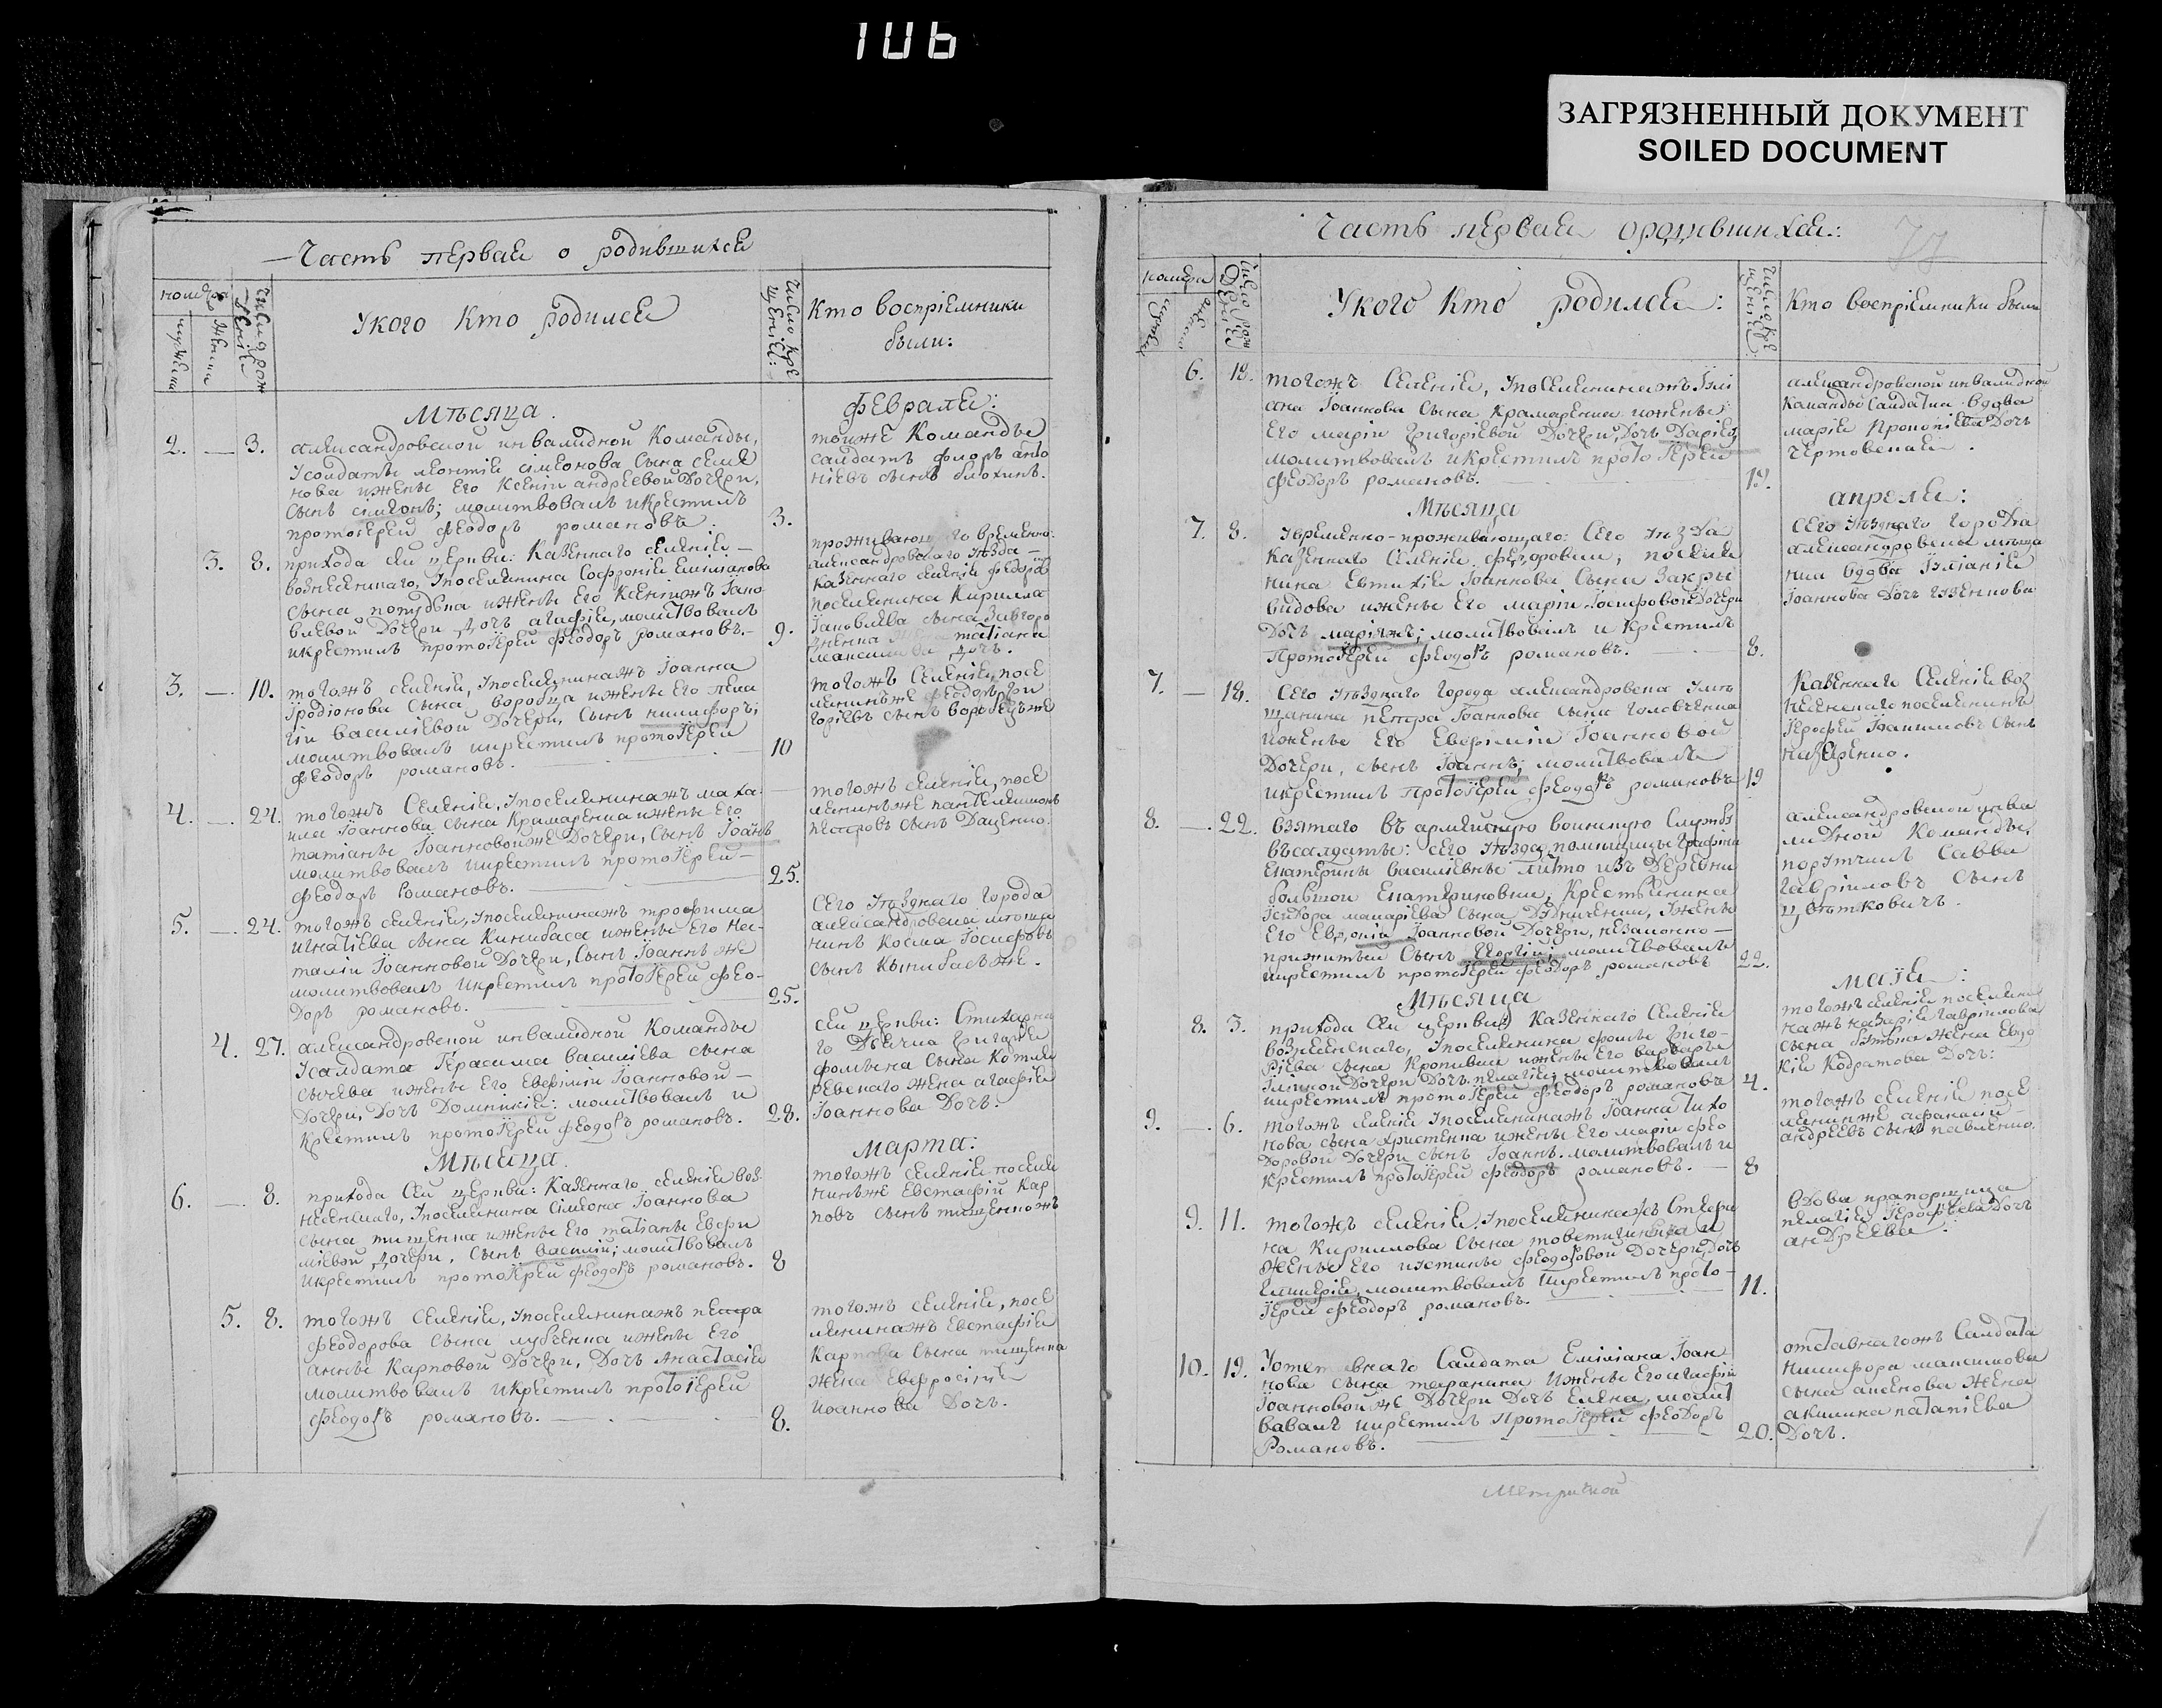 106
ЗАГРЯЗНЕННЫЙ ДОКУМЕНТ
SOILED DOCUMENT
Часть первая о родившихся
номера
мужеска
женска
число рож
деніе
Укого Кто родился
число кре
щеніе:
Кто воспріемники
были:
Мѣсяца
февраля:
2. — 3.
александровской инвалидной Команды,
Усолдата леонтіе сімеонова сына семе
нова иженьі Его Ксеніи андреевой Дочери,
сынъ сімеонъ; молитвовалъ икрестилъ
протоіерей феодоръ романовъ.
3.
тойже Команды
салдатъ флоръ анто
ніевъ сынъ блохинъ.
3. 8.
прихода сей церкви: Казеннаго селеніе —
вознесенскаго, Упоселянина Софроніе Емиліанова
сына иженьі Его Ксеніижъ Іако
влевой Дочери Дочь агафіе, молитвовалъ
икрестилъ протоіерей феодоръ романовъ. —
9.
проживающаго временно:
александровскаго уѣзда —
казеннаго селеніе федоров
поселянина Кирилла
Іаковлева сына Завгоро
днена жена татіана
максимова дочь.
3. — 10.
тогожъ селеніе, Упоселянинажъ Іоанна
Іродіонова сына воробца иженьі Его пела
гіи василіевой Дочери, сынъ никифоръ;
молитвовалъ икрестилъ протоіерей
феодоръ романовъ.
10
тогожъ селеніе, посе
лянинъже феодоръ гри
горіевъ сынъ воробецъже
4. — 24.
тогожъ селеніе, Упоселянинажъ миха
ила Іоаннова сына Крамаренка иженьі Его
татіаньі Іоанновойже Дочери, сынъ Іоаннъ
молитвовалъ икрестилъ протоіерей —
феодоръ Романовъ.
25.
тогожъ селеніе, посе
лянинъже пантелеимонъ
петровъ сынъ Даценко.
5. — 24.
тогожъ селеніе, Упоселянинажъ трофима
игнатіева сына Кинибаса иженьі Его на
таліи Іоанновой Дочери, сынъ Іоаннъ же
молитвовалъ икрестилъ протоіерей фео-
доръ романовъ.
25.
сего уѣзднаго города
александровска мѣща
нинъ Косма Іосифовъ
сынъ Кинибасъже.
4. 27.
александровской инвалидной Команды
Усалдата Герасима василіева сына
сычева иженьі Его Евфіміи Іоанновой —
Дочери, Дочь Домникіе: молитвовалъ и
крестилъ протоіерей феодоръ романовъ.
28.
сей церкви: Стихарна
го Дьячка григоріе
фомьина сына Котля
ревскаго жена агафіе
Іоаннова Дочь.
Мѣсяца
марта:
6. — 8.
прихода сей церкви: Казеннаго селеніе воз
несенскаго, Упоселянина сімеона Іоаннова
сына тищенка иженьі Его татіаньі Евфи
міевой Дочери, сынъ василій; молитвовалъ
икрестилъ протоіерей феодоръ романовъ.
8
тогожъ селеніе поселя
нинъже Евстафій Кар
повъ сынъ тищенкожъ
5. 8.
тогожъ селеніе, Упоселянинажъ петра
феодорова сына лубенка иженьі Его
анньі Карповой Дочери, Дочь Анастасіе
молитвовалъ икрестилъ протоіерей
феодоръ романовъ.
8.
тогожъ селеніе, посе
лянинажъ Евстафіе
Карпова сына тищенка
жена Евфросініе
иоаннова Дочь.
Часть первая ородившихся:
номера
мужеска
женска
число рож
деніе
Укого Кто родился:
число кре
щеніе:
Кто воспріемники были
6. 18.
тогожъ селеніе, Упоселянинажъ Іулі
ана Іоаннова сына Крамаренка иженьі
Его маріи григоріевой Дочери, Дочь Даріе
молитвовалъ икрестилъ протоіерей
феодоръ романовъ.
19.
александровской инвалидной
Команды Салдатка вдова
маріе Прокопіева Дочь
чертовскае.
Мѣсяца
апреля:
7. 8.
Увременно-проживающаго: Сего уѣзда
Казеннаго Селеніе федоровки, поселе
нина Евтихіе Іоаннова сына Закры
видова иженьі Его маріи Іосифовой Дочери
Дочь маріяжъ; молитвовалъ и крестилъ
Протоіерей феодоръ романовъ.
8.
Сего уѣзднаго города
александровска мѣща
нка вдова Іуліаніе
Іоаннова Дочь
7. — 18.
Сего уѣзднаго города александровска Умѣ
щанина петра Іоаннова сына головченка
иженьі Его Евфіміи Іоанновой
Дочери, сынъ Іоаннъ; молитвовалъ
икрестилъ протоіерей феодоръ романовъ
19
Казеннаго Селеніе воз
несенскаго поселянинъ
Іерофей Іоакимовъ сынъ
назаренко.
8. — 22.
взятаго въ армейскую воинскую службу
въсалдатьі: сего уѣзда, помѣщицьі графини
Екатериньі василіевньі литто изъ Деревни
большой Екатериновки, крестьянина
Ісидора макаріева сына Дудниченка, Уженьі
Его Іоанновой Дочери, незаконно —
прижитый Сынъ Георгій; молитвовалъ
икрестилъ протоіерей феодоръ романовъ
22.
александровской инва
лидной Командьі,
порутчикъ Савва
гавріиловъ сынъ
цвѣтковичъ.
Мѣсяца
маіе:
8. 3.
прихода сей церкви: Казеннаго Селеніе
вознесенскаго, Упоселянина фомьі григо-
ріева сына Кропивки иженьі Его варварьі
Іліиной Дочери Дочь пелагіе; молитвовалъ
икрестилъ протоіерей феодоръ романовъ
4.
тогожъ селеніе поселяни
нажъ назаріе гавріилова
сына жена Евдо
кіе Кодратова Дочь:
9. — 6.
тогожъ селеніе Упоселянинажъ Іоанна тихо
нова сына христенка иженьі Его маріи фео
доровой Дочери сынъ Іоаннъ. молитвовалъ и
крестилъ протоіерей феодоръ романовъ. —
8
тогожъ селеніе посе
лянинже афанасій
андреевъ сынъ павленко.
9. 11.
тогожъ селеніе, Упоселянинажъ Стефа
на Кириллова сына и
женьі Его иустиньі феодоровой Дочери, Дочь
Гликеріе, молитвовалъ икрестилъ прото-
іерей феодоръ романовъ.
11.
вдова прапорщица
пелагіе Іерофеева Дочь
андреева:
10. 19.
Уотставнаго Салдата Емиліана Іоан
нова сына таранина иженьі Его агафіи
Іоанновойже Дочери Дочь Елена, молит
вовалъ икрестилъ Протоіерей феодоръ
Романовъ.
20.
отставнагожъ Салдата
никифора максимова
сына аксенова жена
акилина патапіева
Дочь.
Метрической